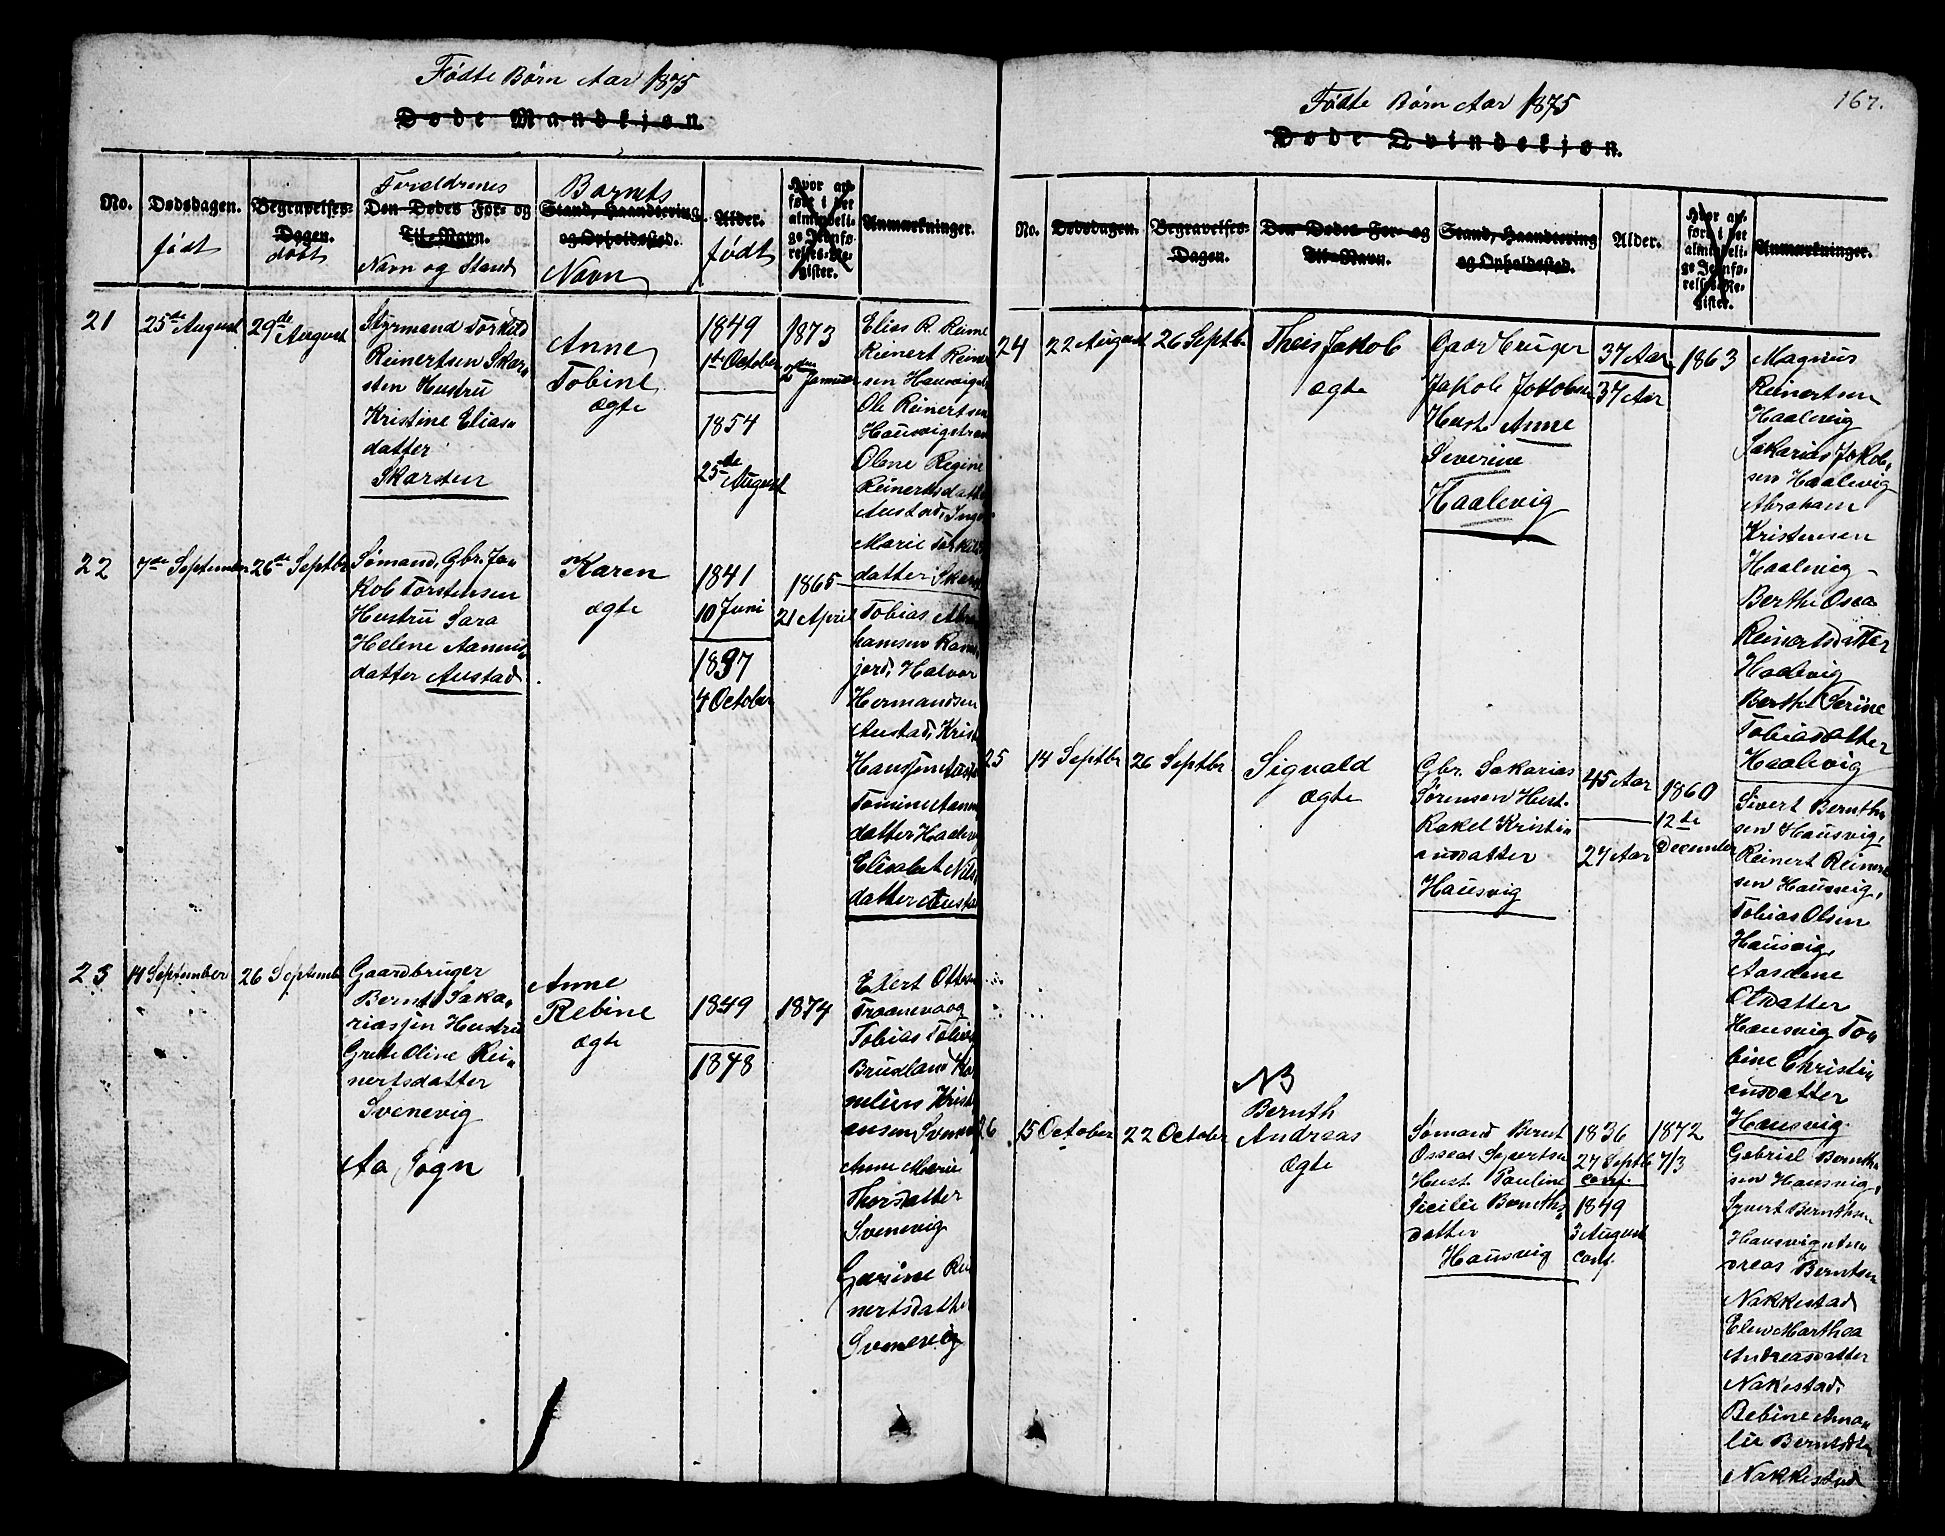 Fødte Børn Aar 1875
Døde Mandkjøn.
No.
Dødsdagen.
født
Begravelses-
Dagen.
døbt
Forældrenes
Den Dødes For- og
Til-Navn.
Navn og Stand
Barnets
Stand, Haandtering
og Opholdssted.
Navn
Alder.
født
Hvor an-
ført i det
almindeli-
ge Jevnfø-
relses-Re-
gister.
Anmærkninger.
21
25de August
29de August
Styrmand Torkild
Reinertsen Skar-
sten Hustru
Kristine Elias-
datter
Skarsten
Anne
Tobine
ægte
1849
1ste October
1854
25de August
1873
2den Januar
Elias R. Reine
Reinert Reiner
sen Hausvig
Ole Reinertsen
Hausvigstran
Olene Regine
Reinertsdatter
Austad, Inger
Marie Torkilds
datter Skarst
22
7de September
26de Septbr
Sømand, Gbr. Ja-
kob Torstensen
Hustru Sara
Helene Aanens-
datter Austad
Karen
ægte
1841
10 Juni
1837
4 October
1865
21 April
Tobias Abra
hamsen Ram
jord, Halvor
Hermandsen
Austad, Krist
Hansen Austa
Tomine Aanen
datter Haalevi
Elisabet Nils
datter Austad
23
14 September
26 Septemb
Gaardbruger
Bernt Saka-
riassen Hustru
Grete Oline Rei-
nertsdatter
Svenevig
Aa Sogn
Anne
Rebine
ægte
1849
1848
1874
Edert Ottosen
Traanevaag
Tobias Tobias
Brueland Kor
nelius Kristi
ansen Svenevig
Anne Marie
Thorsdatter
Svenevig
Gurine Rei
nertsdatter
Svenevig
Fødte Børn Aar 1875
167.
Døde Qvindekjøn.
No.
Dødsdagen.
Begravelses-
Dagen.
Den Dødes For- og
Til-Navn.
Stand, Haandtering
og Opholdssted.
Alder.
Hvor an-
ført i det
almindeli-
ge Jevnfø-
relses-Re-
gister.
Anmærkninger.
24
22 August
26 Septbr
Theis Jakob
ægte
Gaardbruger
Jakob Jakobsen
Hust. Anne
Severine
Haalevig
37 Aar
37 Aar
1863
Magnus
Reinertsen
Haalevig
Sakarias Jakob-
sen Haalevig
Abraham
Kristensen
Haalevig
Berthe Osea
Reinertsdatter
Haalevig
Berthe Serine
Tobiasdatter
Haalevig
25
14 Septbr
26 Septbr
Sigvald
ægte
Gbr. Sakarias
Sørensen Hust.
Rakel Kristi-
ansdatter
Hausvig
45 Aar
27 Aar
1860
12te
December
Sivert Bernth-
sen Hausvig,
Reinert Reinert
sen Hausvig,
Tobias Olsen
Hausvig,
Aasdene
Otsdatter
Hausvig To-
bine Christi-
ansdatter
Hausvig.
26
15 October
22 October
NB
Bernth
Andreas
ægte
Sømand Bernt
Osseas Syvertsen
Hust. Pauline
Sicilie Bernths-
datter
Hausvig
1836
27 Septb
conf.
1849
3 August
conf.
1872
7/3
Gabriel Bernth-
sen Hausvig,
Syvert Bernthsen
Hausvig An-
dreas Berntsen
Nakkestad
Elen Marthea
Andreasdatter
Nakestad,
Bebine Ama-
lie Berntsdtr
Nakkestad